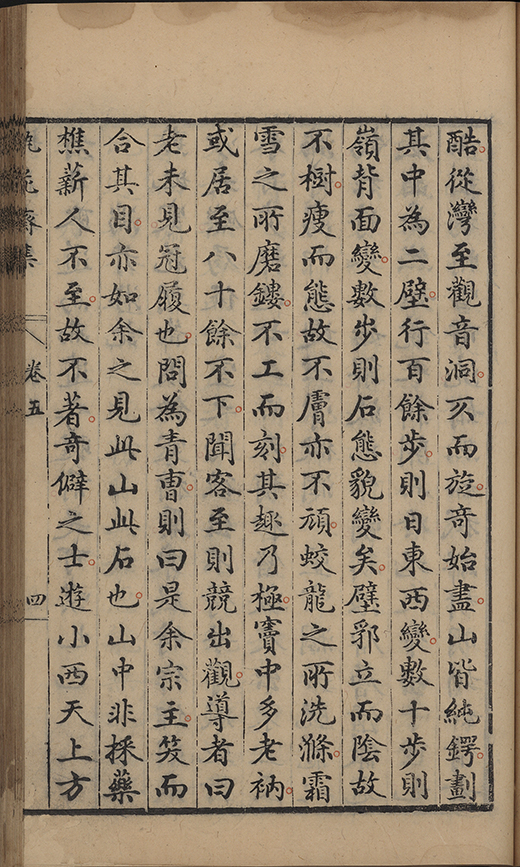 酷從灣至觀音洞又而旋奇始盡山皆純鍔劃
其中為二壁行百餘步則日東西變數十步則
嶺背面變數步則石態貌變矣壁郛立而陰故
不樹瘦而態故不膚亦不頑蛟龍之所洗滌霜
雪之所磨鏤不工而刻其趣乃極竇中多老衲
或居至八十餘不下聞客至則競出觀導者曰
老未見冠履也問為青曹則曰是余宗主笈而
合其目亦如余之見此山此石也山中非採藥
樵薪人不至故不著奇僻之士遊小西天上方
卷五
四